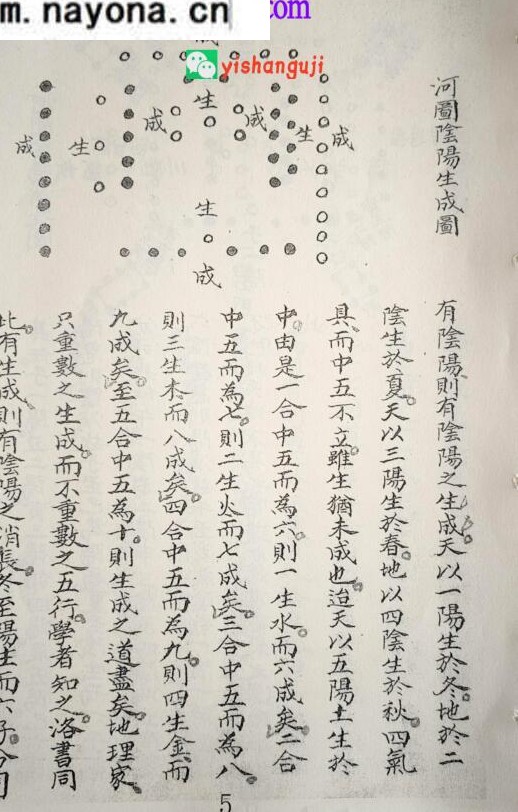 m.nayona.cn
com
yishanguji
河圖陰陽生成圖
成
生
成
成
生
成
生
生
成
有陰陽則有陰陽之生成天以一陽生於冬地於二
陰生於夏天以三陽生於春地以四陰生於秋四氣
具而中五不立雖生猶未成也迨天以五陽土生於
中由是一合中五而為六則一生水而六成矣二合
中五而為七則二生火而七成矣三合中五而為八
則三生木而八成矣四合中五而為九則四生金而
九成矣至五合中五為十則生成之道盡矣地理家
只重數之生成而不重數之五行學者知之洛書同
此有生成則有陰陽之消長冬至陽生而六子
5